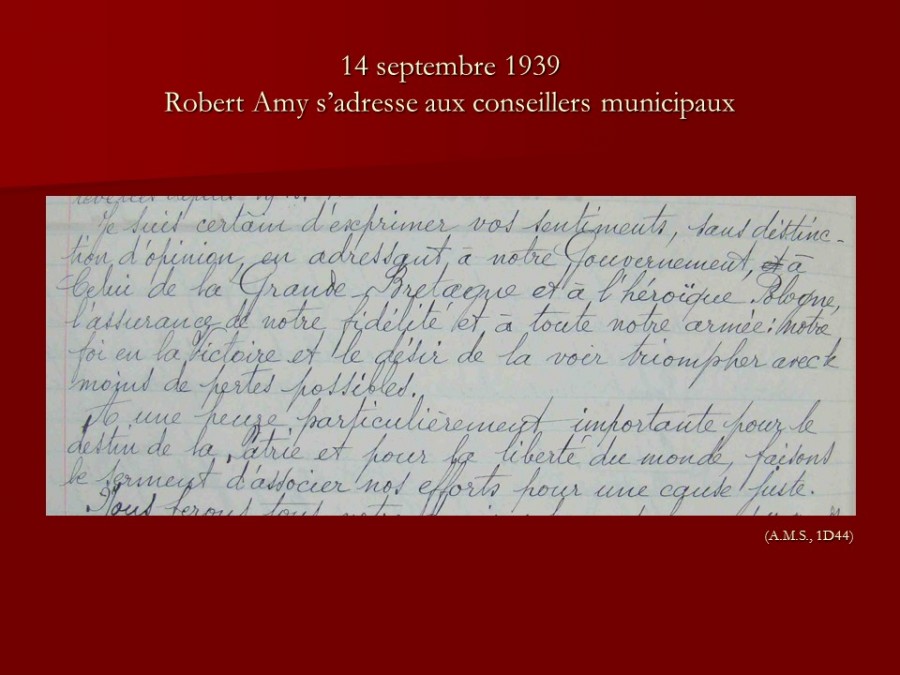 14 septembre 1939
Robert Amy s’adresse aux conseillers municipaux
Je suis certain d'exprimer vos sentiments, sans distinc-
tion d'opinion, en adressant, à notre Gouvernement, et à
Celui de la Grande Bretagne et à l'héroïque Pologne,
l'assurance de notre fidélité et, à toute notre armée: notre
foi en la Victoire et le désir de la voir triompher avec le
moins de pertes possibles.
A une heure particulièrement importante pour le
destin de la Patrie et pour la liberté du monde, faisons
le serment d'associer nos efforts pour une cause juste.
Nous ferons tous notre
(A.M.S., 1D44)